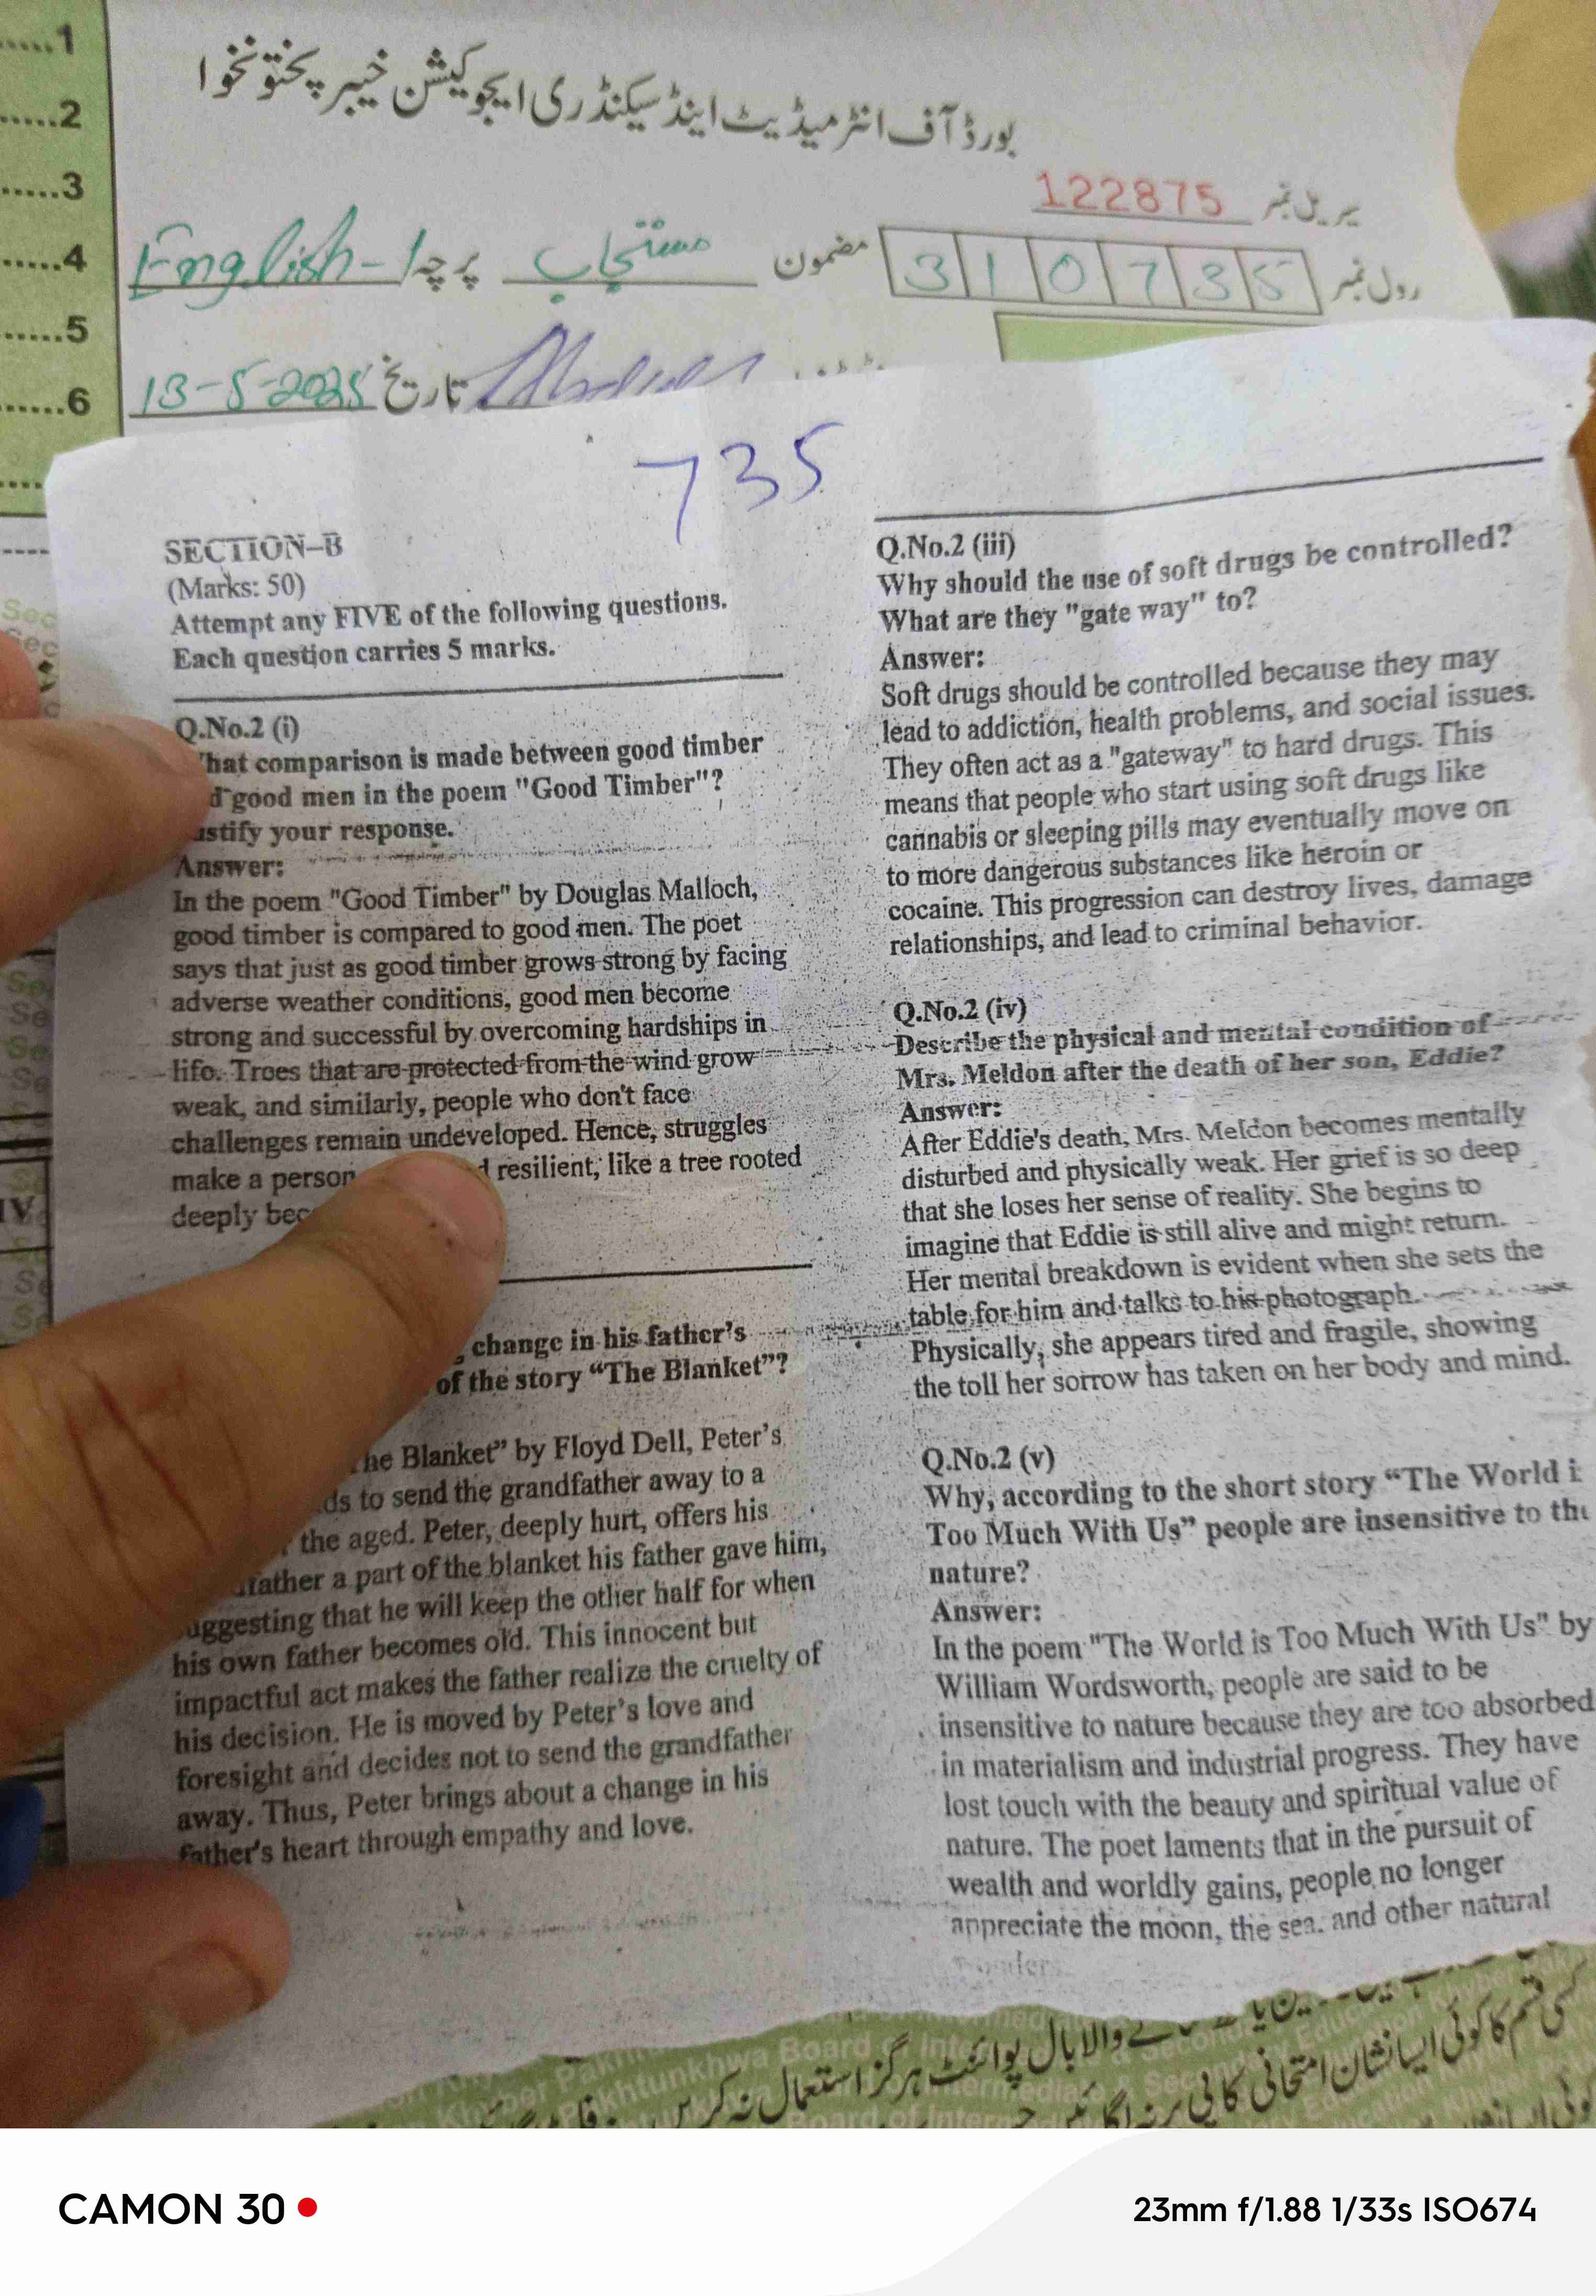 .....1
.....2
.....3
.....4
.....5
.....6
بورڈ آف انٹرمیڈیٹ اینڈ سیکنڈری ایجوکیشن خیبر پختونخوا
سیریل نمبر 122875
رول نمبر 310735 مضمون پرچہ English-I
تاریخ 13-5-2025
735
SECTION–B
(Marks: 50)
Attempt any FIVE of the following questions.
Each question carries 5 marks.
Q.No.2 (i)
hat comparison is made between good timber
d good men in the poem "Good Timber"?
stify your response.
Answer:
In the poem "Good Timber" by Douglas Malloch,
good timber is compared to good men. The poet
says that just as good timber grows strong by facing
adverse weather conditions, good men become
strong and successful by overcoming hardships in
life. Trees that are protected from the wind grow
weak, and similarly, people who don't face
challenges remain undeveloped. Hence, struggles
make a person resilient, like a tree rooted
deeply
change in his father's
of the story “The Blanket”?
he Blanket” by Floyd Dell, Peter's
ds to send the grandfather away to a
the aged. Peter, deeply hurt, offers his
father a part of the blanket his father gave him,
uggesting that he will keep the other half for when
his own father becomes old. This innocent but
impactful act makes the father realize the cruelty of
his decision. He is moved by Peter's love and
foresight and decides not to send the grandfather
away. Thus, Peter brings about a change in his
father's heart through empathy and love.
Q.No.2 (iii)
Why should the use of soft drugs be controlled?
What are they "gate way" to?
Answer:
Soft drugs should be controlled because they may
lead to addiction, health problems, and social issues.
They often act as a "gateway" to hard drugs. This
means that people who start using soft drugs like
cannabis or sleeping pills may eventually move on
to more dangerous substances like heroin or
cocaine. This progression can destroy lives, damage
relationships, and lead to criminal behavior.
Q.No.2 (iv)
Describe the physical and mental condition of
Mrs. Meldon after the death of her son, Eddie?
Answer:
After Eddie's death, Mrs. Meldon becomes mentally
disturbed and physically weak. Her grief is so deep
that she loses her sense of reality. She begins to
imagine that Eddie is still alive and might return.
Her mental breakdown is evident when she sets the
table for him and talks to his photograph.
Physically, she appears tired and fragile, showing
the toll her sorrow has taken on her body and mind.
Q.No.2 (v)
Why, according to the short story “The World i
Too Much With Us” people are insensitive to the
nature?
Answer:
In the poem "The World is Too Much With Us" by
William Wordsworth, people are said to be
insensitive to nature because they are too absorbed
in materialism and industrial progress. They have
lost touch with the beauty and spiritual value of
nature. The poet laments that in the pursuit of
wealth and worldly gains, people no longer
appreciate the moon, the sea. and other natural
والا بال پوائنٹ ہرگز استعمال نہ کریں
کسی قسم کا کوئی ایسا نشان امتحانی کاپی پر نہ لگائیں
CAMON 30
23mm f/1.88 1/33s ISO674